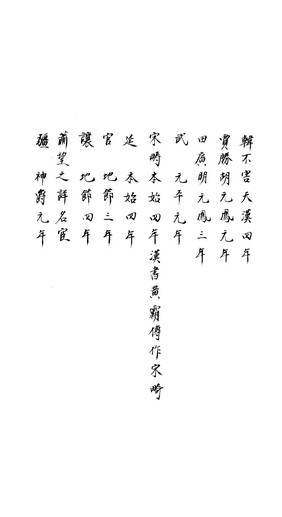 韓不害天漢四年
賈勝胡元鳳元年
田廣明元鳳三年
武 元平元年
宋畸本始四年漢書黃霸傳作宋畸
延 本始四年
官 地節三年
讓 地節四年
蕭望之詳名宦
彊 神爵元年